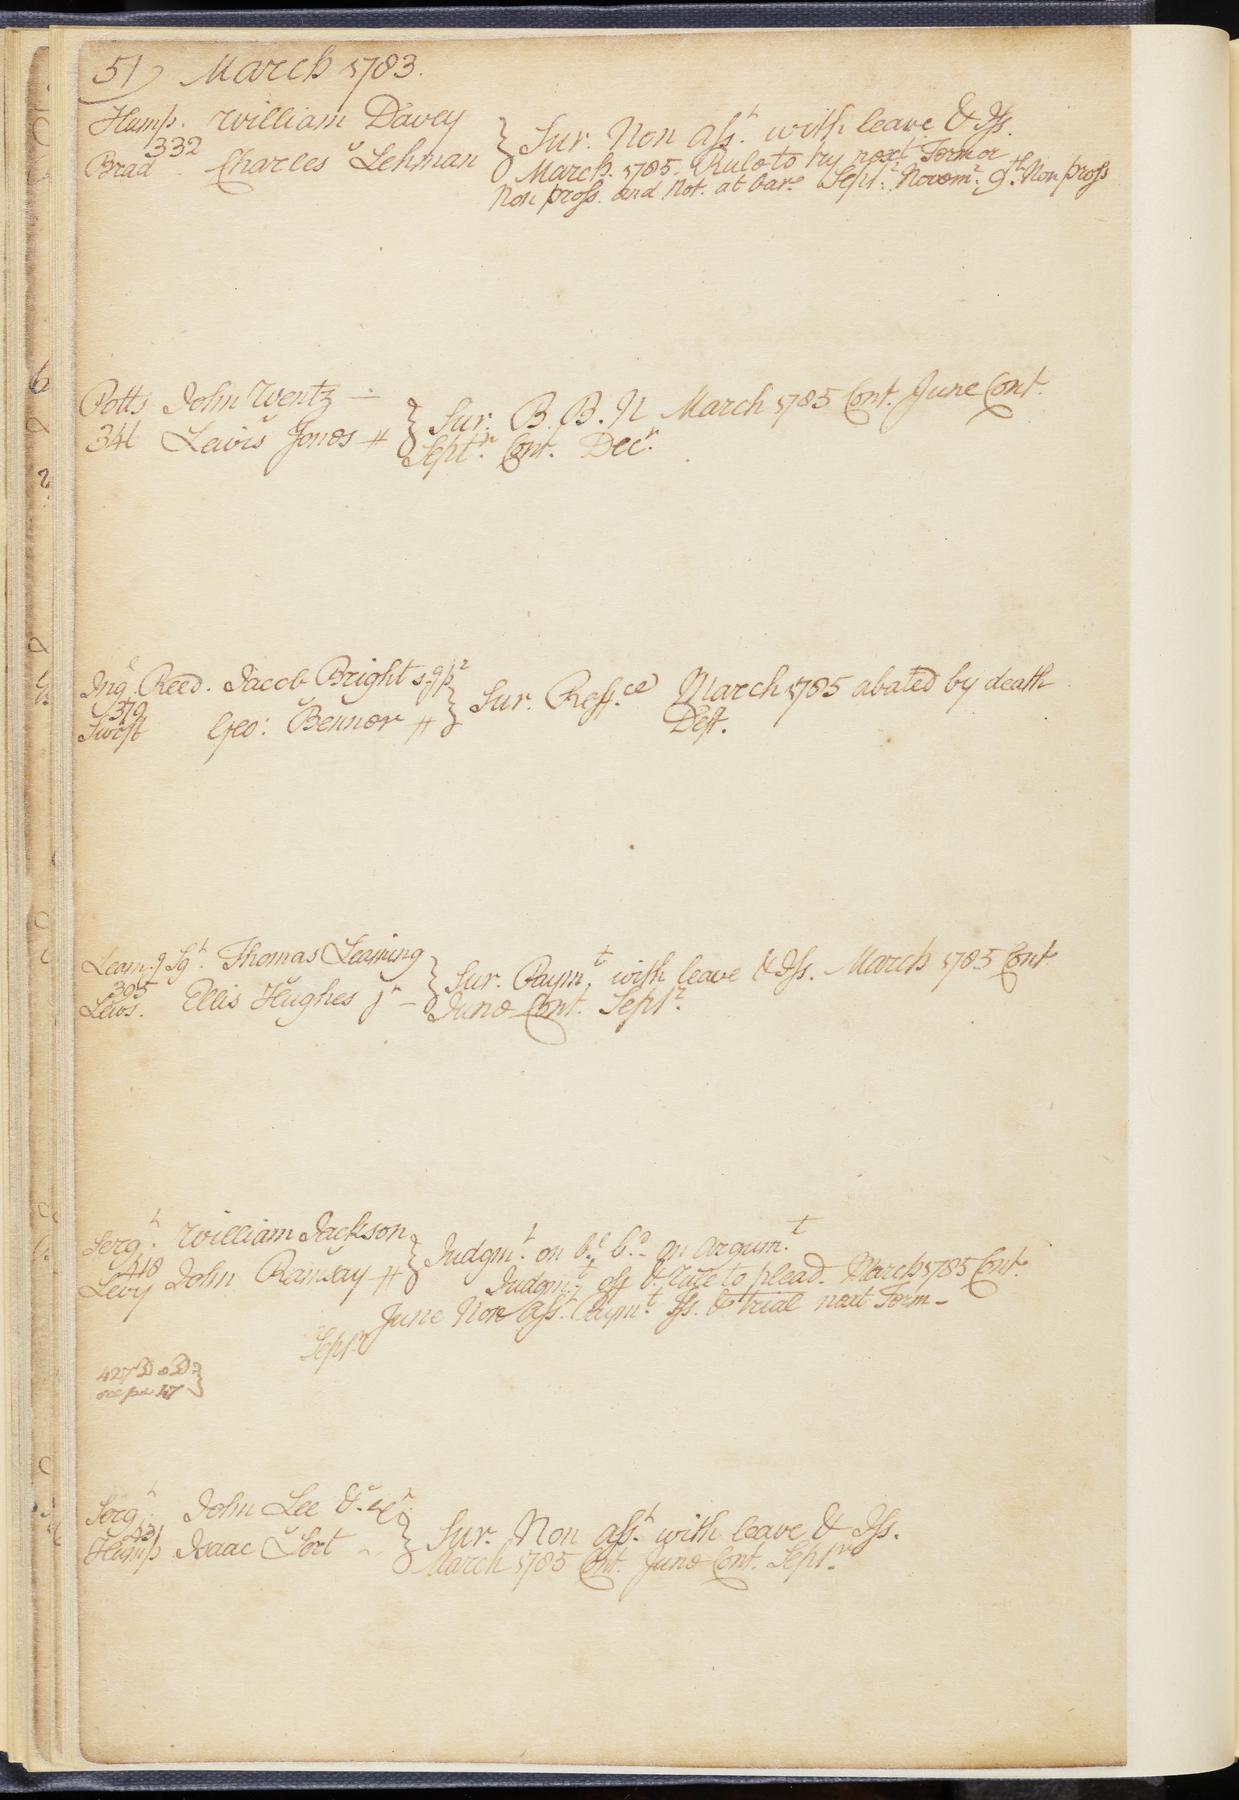 51) March 1783.
Hump. William Davey
332
Brad Charles Lehman
Sur. Non Ass.t with leave & Iss.
March. 1785. Rule to try next Term or
Non pross. and Not. at bar. Sept.r Novem.r 9th Non pross
Potts John Wentz
341 Lewis Jones
Sur. B. B. N March 1785 Cont. June Cont.
Sept.r Cont. Dec.r
Ing. Reed. Jacob Bright
379
Swift Geo: Bennor
Sur. Reff.ce March 1785 abated by death
Deft.
Leam.g Sg.t Thomas Leaming
395
Lews. Ellis Hughes jr
Sur. Paym.t with leave & Iss. March 1785 Cont.
June Cont. Sept.r
Serg.t William Jackson
418
Levy John Ramsay
Judgm.t on on Argum.t
Judgm.t off & Rule to plead. March 1785 Cont.
June Non Ass.t Paym.t Iss. & trial next Term
Sept.r
427
see pa 47
Serg.t John Lee
431
Hump Isaac
Sur. Non Ass.t with leave & Iss.
March 1785 Cont. June Cont. Sept.r